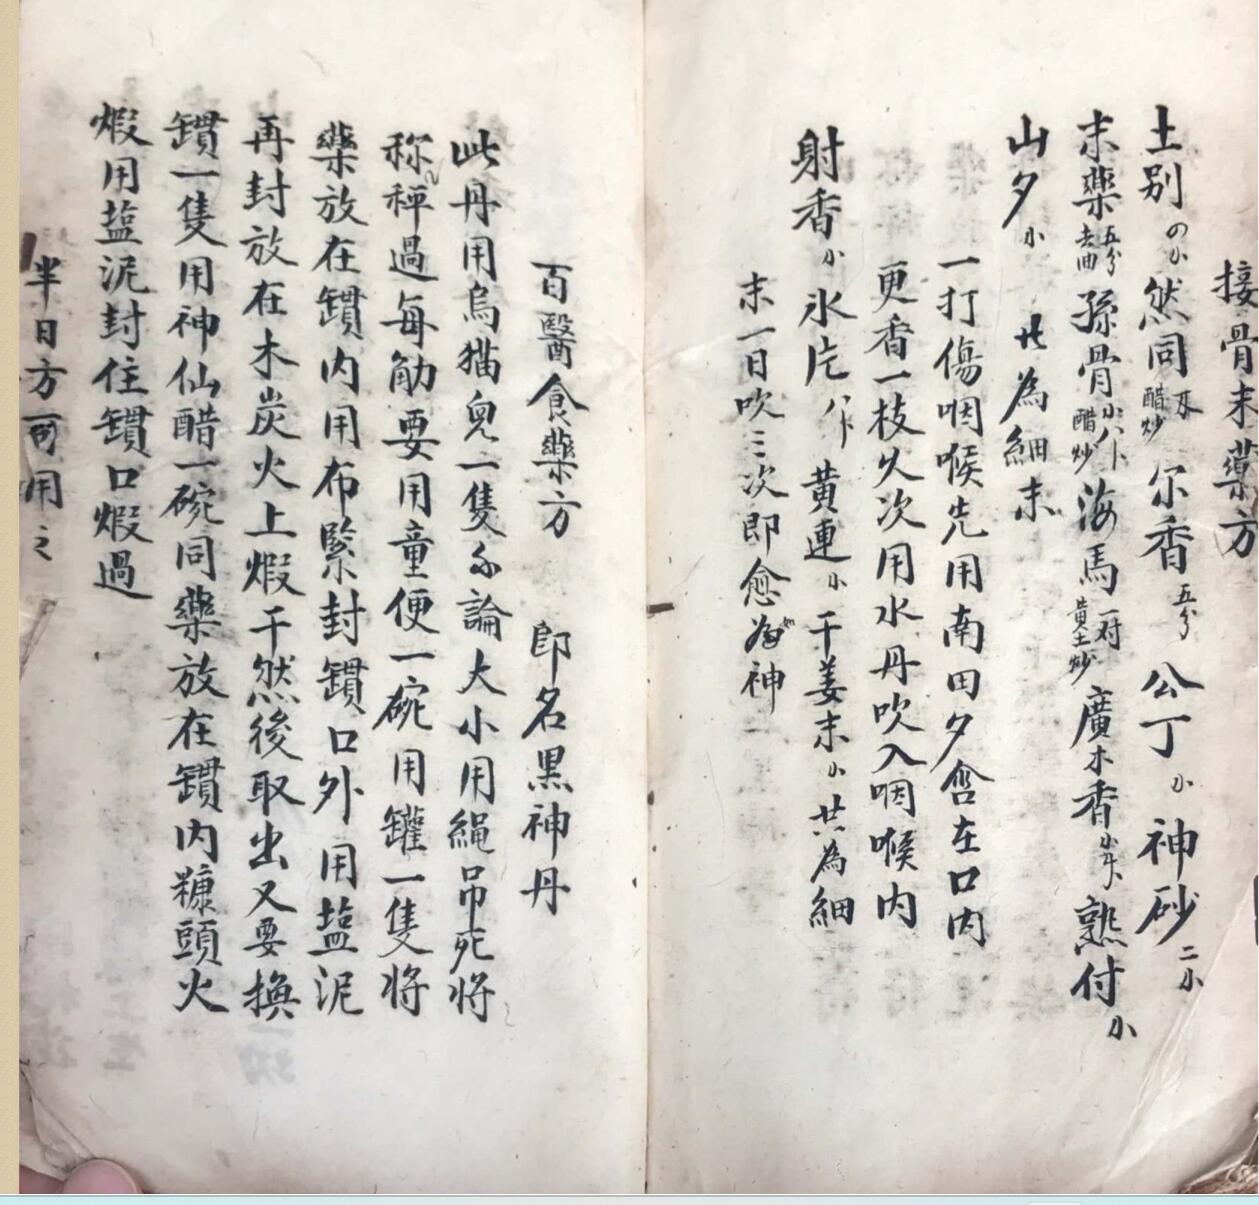 接骨末藥方
土别 然同 醋炒 尔香 五分 公丁 小 神砂 二小
末藥 五分 去曲 孫骨 醋炒 海馬 一对 黄土炒 廣木香 熟付 小
山夕 小 共為細末
一打傷咽喉先用南田夕含在口内
更香一枝久次用水丹吹入咽喉内
射香 小 氷片 黄連 小 干姜末 小 共為細
末一日吹三次即愈為神
百醫食藥方 即名黑神丹
此丹用烏猫皃一隻不論大小用繩吊死將
称秤過每觔要用童便一碗用罐一隻將
藥放在鑵内用布緊封鑵口外用盐泥
再封放在木炭火上煆干然後取出又要換
鑵一隻用神仙醋一碗同藥放在鑵内糠頭火
煆用盐泥封住鑵口煆過
半日方可用之